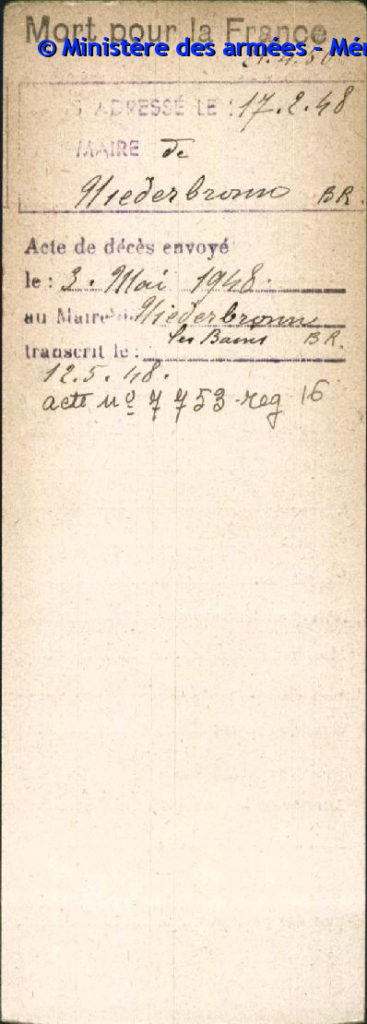 Mort pour la France
© Ministère des armées - Mé
ADRESSÉ LE : 17.2.48
MAIRE de
Niederbronn BR.
Acte de décès envoyé
le : 3. Mai 1948.
au Maire de Niederbronn
les Bains BR.
transcrit le :
12.5.48.
acte nº 7 753 reg 16